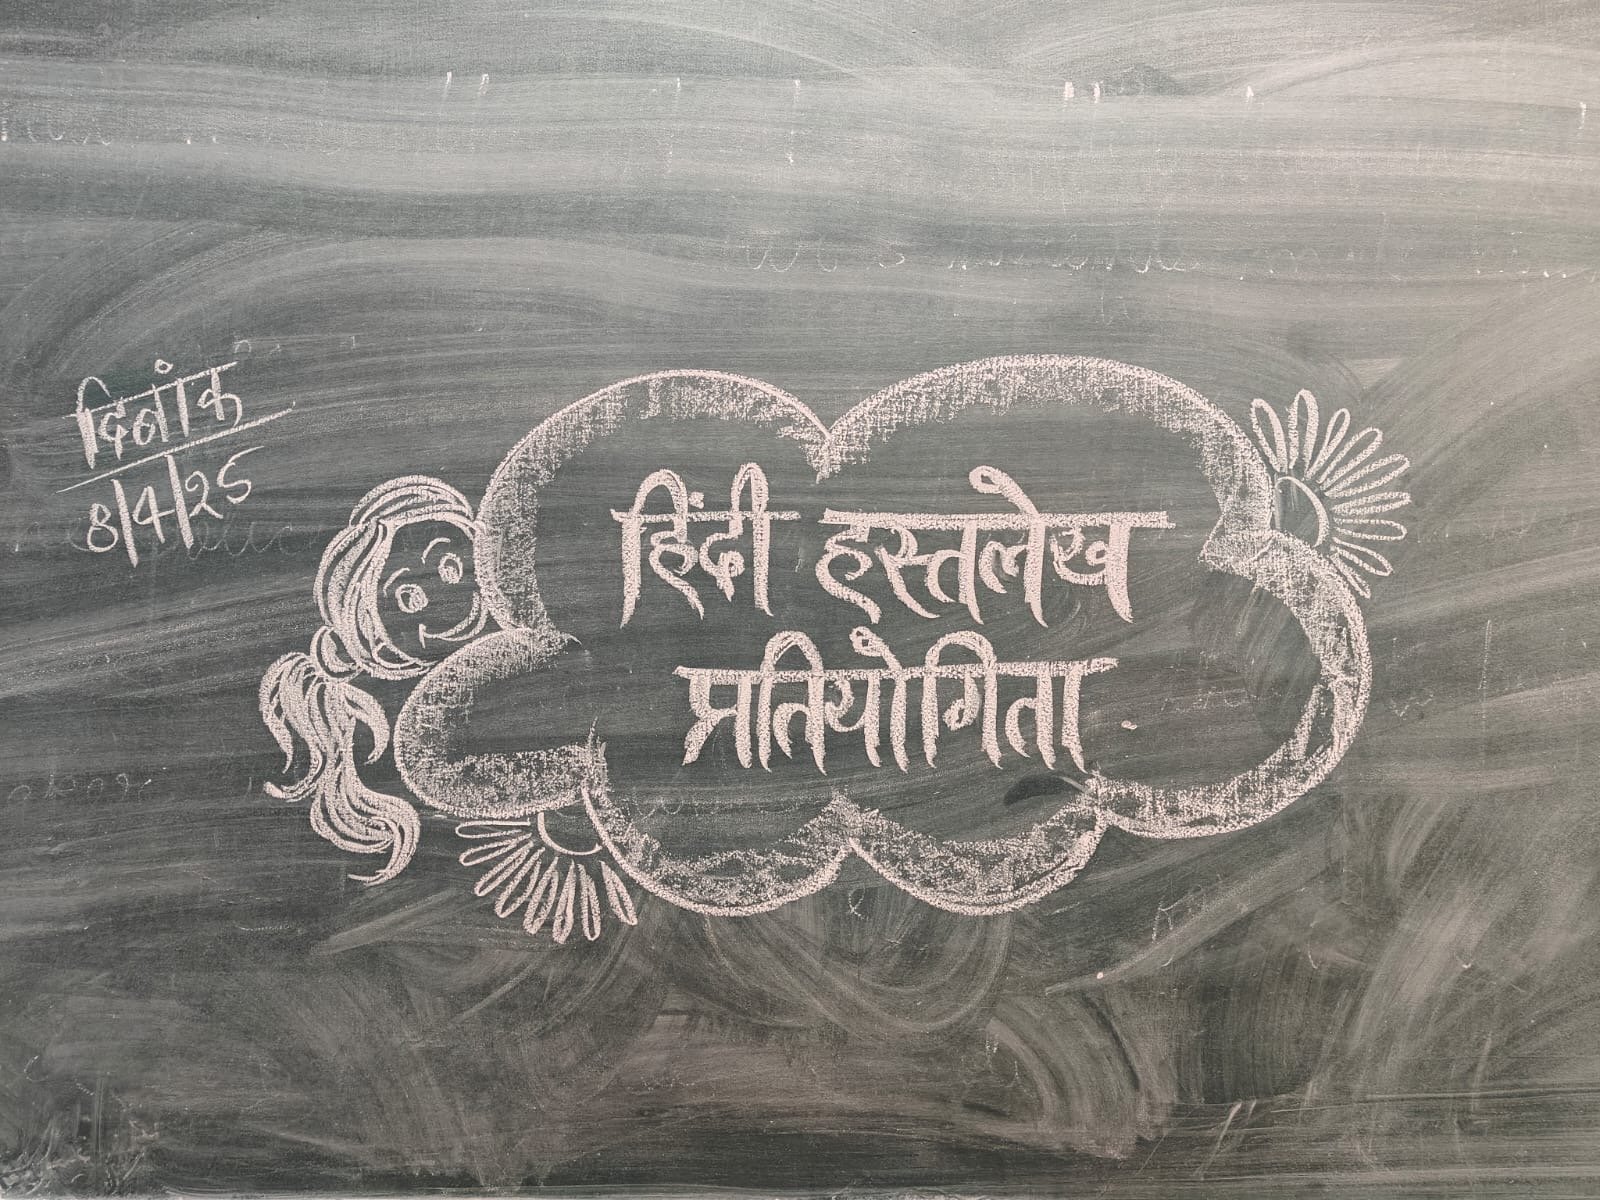 दिनांक
8/4/25
हिंदी हस्तलेख
प्रतियोगिता.